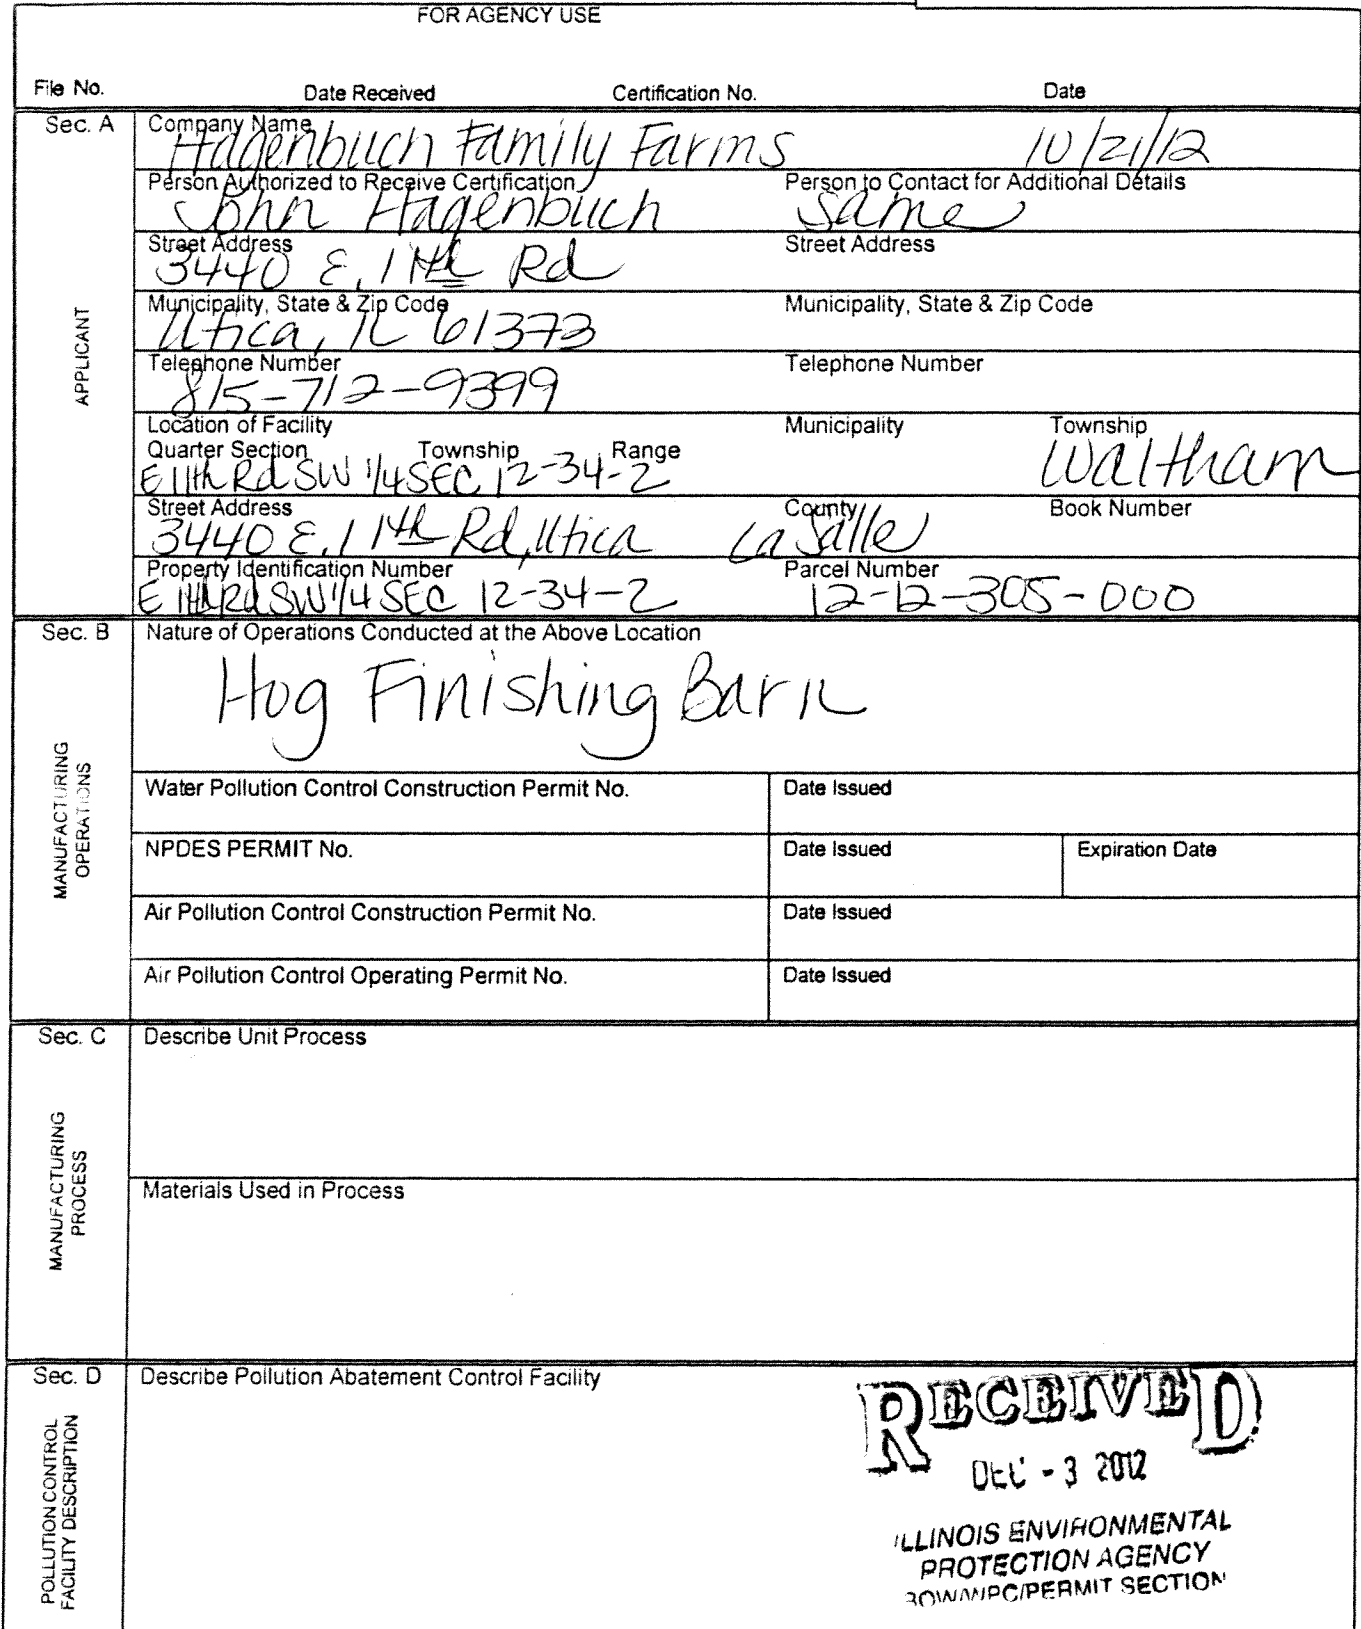 FOR AGENCY USE
File No. Date Received Certification No. Date
Sec. A
APPLICANT
Company Name
Hagenbuch Family Farms 10/21/12
Person Authorized to Receive Certification Person to Contact for Additional Details
John Hagenbuch same
Street Address Street Address
3440 E. 11th Rd
Municipality, State & Zip Code Municipality, State & Zip Code
Utica, IL 61373
Telephone Number Telephone Number
815-712-9399
Location of Facility Municipality Township
Quarter Section Township Range
E 11th Rd SW 1/4 SEC 12-34-2 Waltham
Street Address County Book Number
3440 E. 11th Rd, Utica LaSalle
Property Identification Number Parcel Number
E 11th Rd SW 1/4 SEC 12-34-2 12-12-305-000
Sec. B
MANUFACTURING
OPERATIONS
Nature of Operations Conducted at the Above Location
Hog Finishing Barn
Water Pollution Control Construction Permit No. Date Issued
NPDES PERMIT No. Date Issued Expiration Date
Air Pollution Control Construction Permit No. Date Issued
Air Pollution Control Operating Permit No. Date Issued
Sec. C
MANUFACTURING
PROCESS
Describe Unit Process
Materials Used in Process
Sec. D
POLLUTION CONTROL
FACILITY DESCRIPTION
Describe Pollution Abatement Control Facility
RECEIVED
DEC - 3 2012
ILLINOIS ENVIRONMENTAL
PROTECTION AGENCY
BOW/WPC/PERMIT SECTION